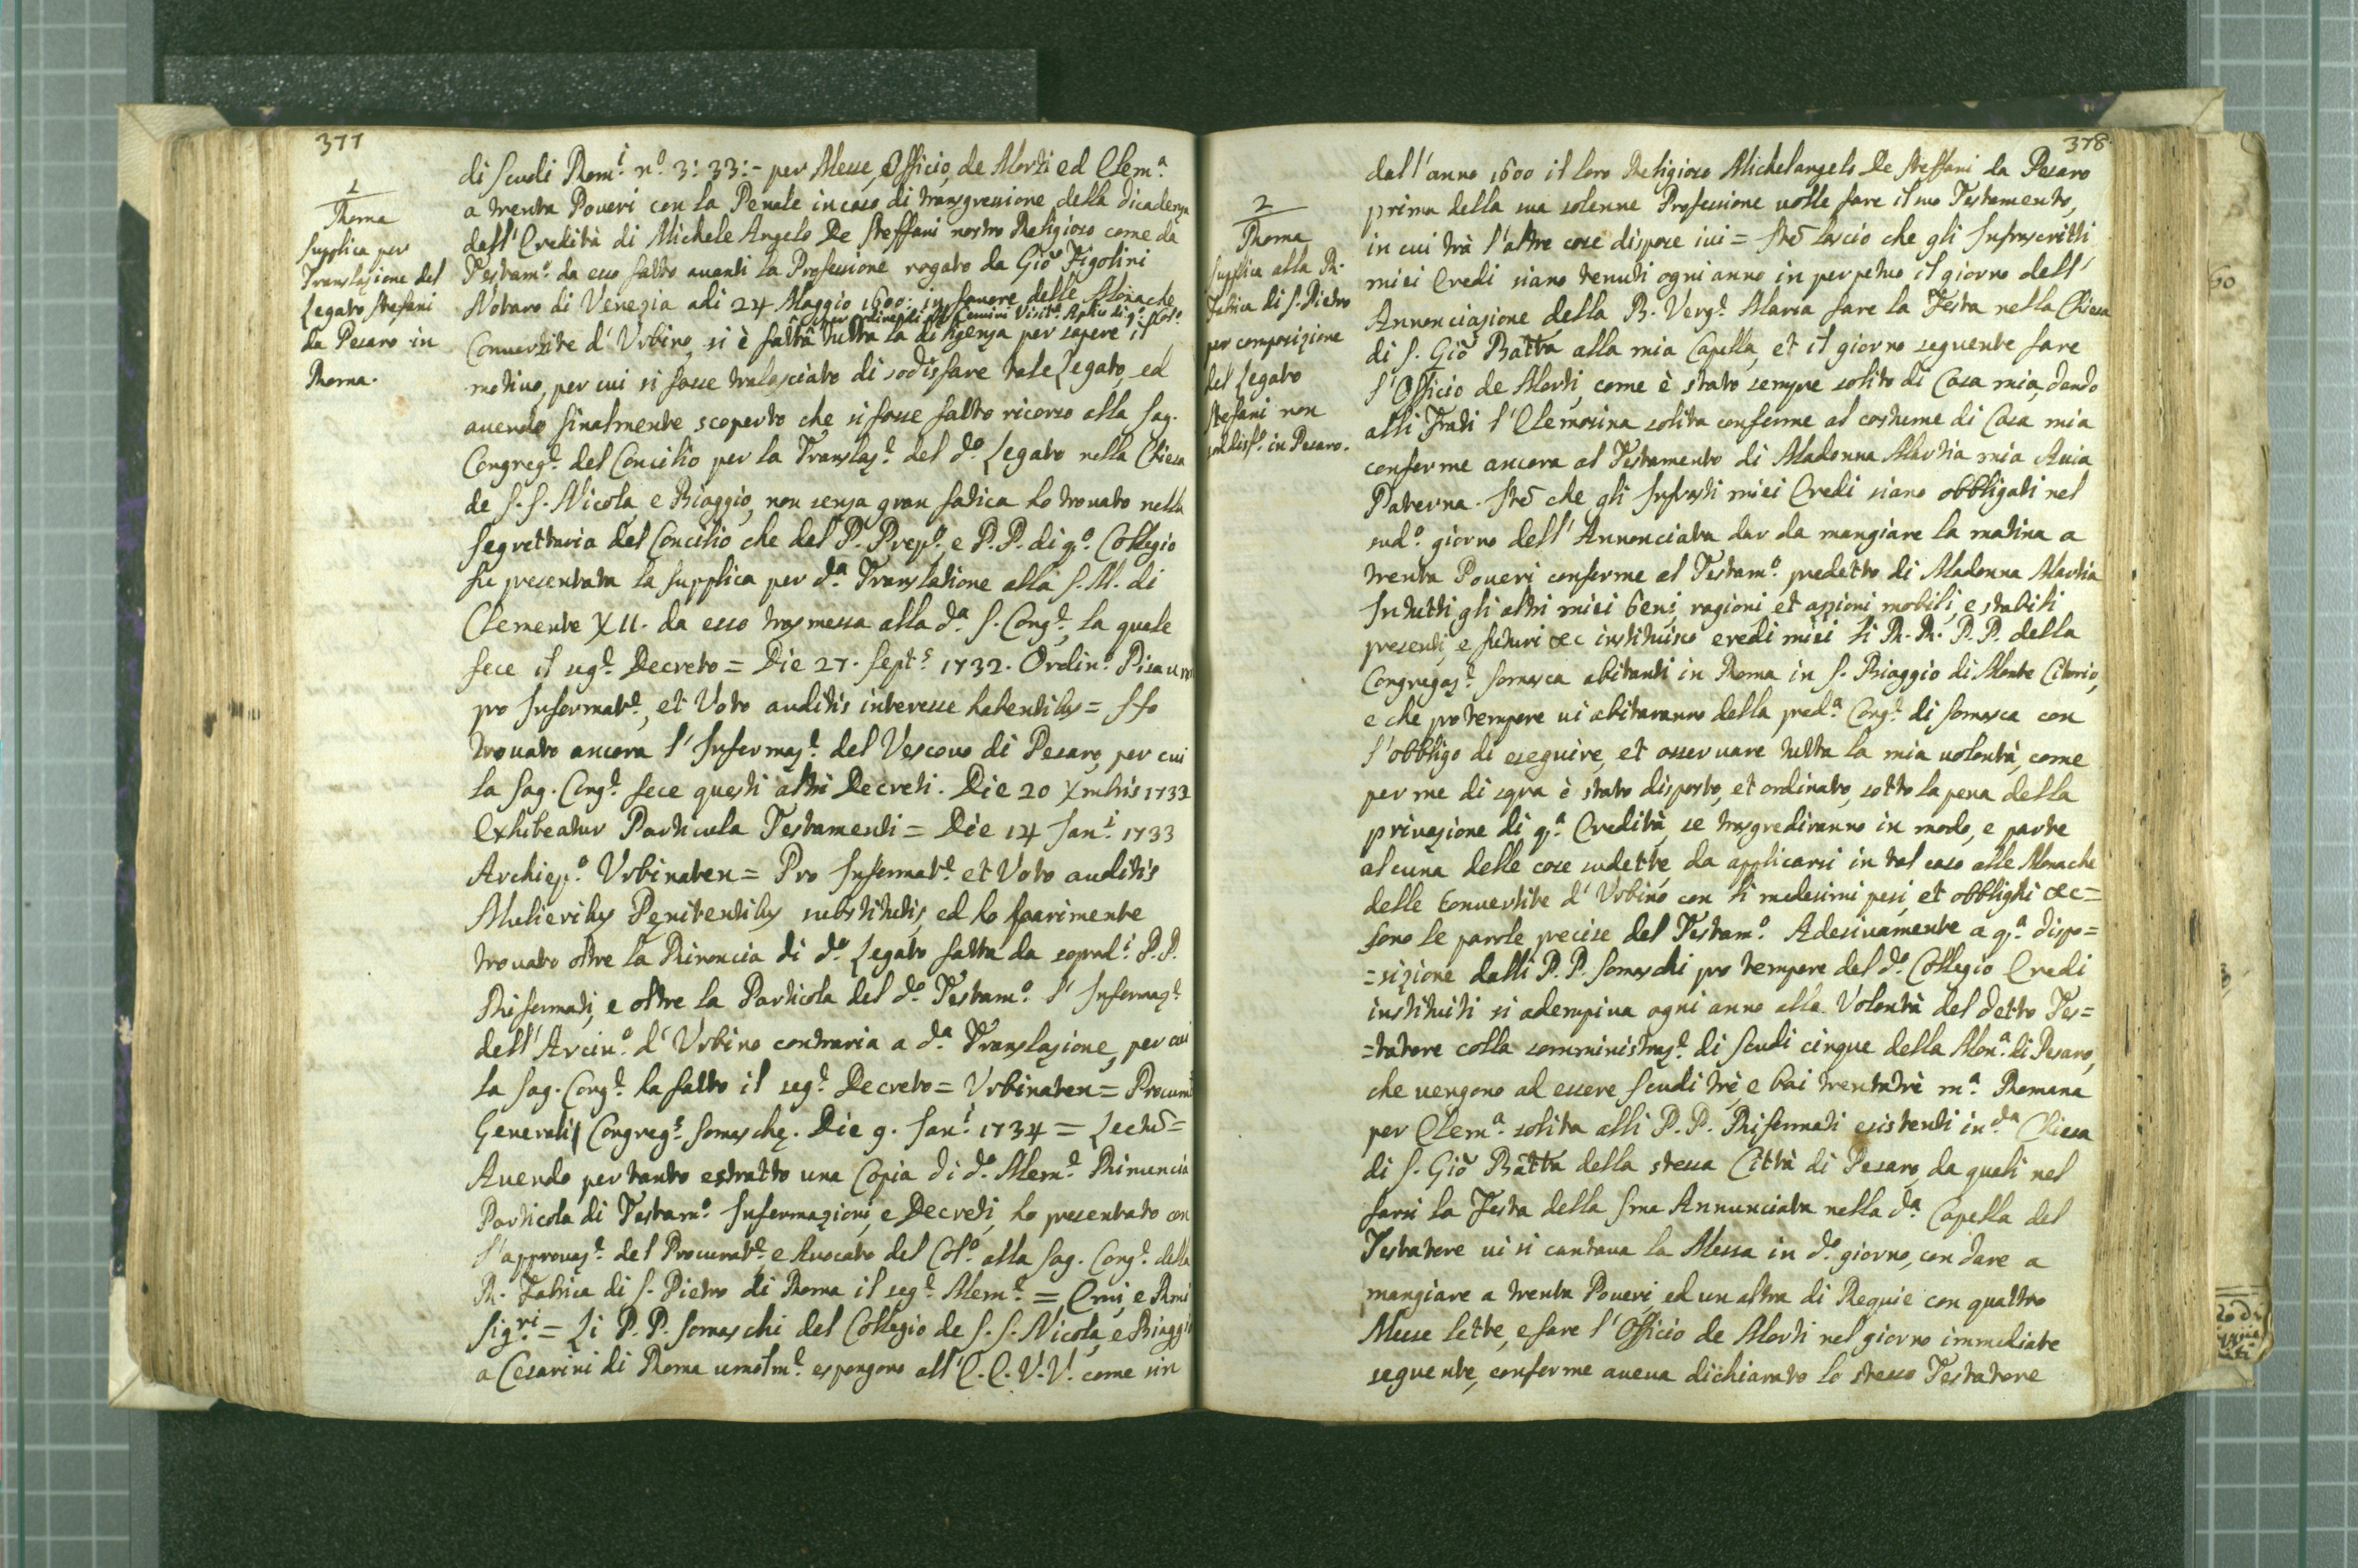 377
1
Roma
Supplica per
Translazione del
Legato Stefani
da Pesaro in
Roma.
di Scudi Rom.i n.o 3: 33:- per Messe, Officio, de Morti ed Elem.a
a trenta Poueri con la Penale in caso di transgressione della dicadenza
dall' Eredità di Michele Angelo De Steffani nostro Religioso come da
Testam.o da esso fatto auanti la Professione rogato da Giō Figolini
Notaro di Venezia adi 24 Maggio 1600: in fauore delle Monache
per ordine di Visit.e Aplico di q.o Col.o
Conuertite d' Vrbino, si è fatta tutta la diligenza per sapere il
motiuo, per cui si fosse tralasciato di sodisfare tale Legato, ed
auendo finalmente scoperto che si fosse fatto ricorso alla Sag.
Congreg.e del Concilio per la Translaz.e del d.o Legato nella Chiesa
de S. S. Nicola, e Biaggio, non senza gran fatica ho trouato nella
Segrettaria del Concilio che del P. Prep.o e P. P. di q.o Collegio
fu presentata la supplica per d.a Translatione alla S. M. di
Clemente XII. da esso trasmessa alla d.a S. Cong.e, la quale
fece il seg.e Decreto = Die 27. Sept.s 1732. Ordin.o Pisauren
pro Informat.e, et Voto auditis interesse habentibus = Ho
trouato ancora l' Informaz.e del Vescouo di Pesaro, per cui
la Sag. Cong.e fece questi altri Decreti. Die 20 Xmbris 1732
Exhibeatur Particula Testamenti = Die 14 Jan.i 1733
Archiep.o Vrbinaten = Pro Informat.e et Voto auditis
Mulieribus Penitentibus substitutis, ed ho parimente
trouato oltre la Rinoncia di d.o Legato fatta da soprad.i P. P.
Riformati, e oltre la Particola del d.o Testam.o l' Informaz.e
dell' Arciu.o d' Vrbino contraria a d.a Translazione, per cui
la Sag. Cong.e ha fatto il seg.e Decreto = Vrbinaten = Procurat
Generalis Congreg.s Somaschę. Die 9. Jan.i 1734 = Lectū =
Auendo per tanto estratto una Copia di d.o Mem.e Rinuncia
Particola di Testam.o Informazioni, e Decreti, ho presentato con
l'approuaz.e del Procurat.e, e Auocato del Col.o alla Sag. Cong.e della
R. Fabrica di S. Pietro di Roma il seg.e Mem.e = Emi, e Rmi
Sig.ri = Li P. P. Somaschi del Collegio de S. S. Nicola, e Biaggio
a Cesarini di Roma umolm.e espongono all' E. E. V. V. come sin
378.
2
Roma
Supplica alla R.
Fabrica di S. Pietro
per composizione
del Legato
Stefani non
soddisf.o in Pesaro.
dall' anno 1600 il loro Religioso Michelangelo De Steffani da Pesaro
prima della sua solenne Professione uolle fare il suo Testamento,
in cui trà l'altre cose dispose iui = Itē lascio che gli Infrascritti
miei Eredi siano tenuti ogni anno in perpetuo il giorno dell'
Annonciazione della B. Verg.e Maria fare la Festa nella Chiesa
di S. Giō Batta alla mia Capella, et il giorno seguente fare
l' Officio de Morti, come è stato sempre solito di Casa mia, dando
alli Frati l' Elemosina solita conforme al costume di Casa mia
conforme ancora al Testamento di Madonna Martia mia Auia
Paterna. Itē che gli Infrasti miei Eredi siano obbligati nel
sud.o giorno dell' Annonciata dar da mangiare la matina a
trenta Poueri conforme al Testam.o predetto di Madonna Martia
In tutti gli altri miei beni, ragioni et azzioni mobili, e stabili
presenti, e futuri &c instituisco eredi miei li R. R. P. P. della
Congregaz.e Somasca abitanti in Roma in S. Biaggio di Monte Citorio,
e che pro tempore ui abitaranno della pred.a Cong.e di Somasca con
l' obbligo di eseguire, et osseruare tutta la mia uolontà, come
per me di sopra è stato disposto, et ordinato, sotto la pena della
priuazione di q.a Eredità, se trasgrediranno in modo, e parte
alcuna delle cose sudette, da applicarsi in tal caso alle Monache
delle Conuertite d' Vrbino con li medesimi pesi, et obblighi &c =
Sono le parole precise del Testam.o Adesiuamente a q.a dispo=
=sizione dalli P. P. Somaschi pro tempore del d.o Collegio Eredi
instituiti si adempiua ogni anno alla Volontà del detto Tes=
=tatore colla somministraz.e di Scudi cinque della Mon.a di Pesaro,
che uengono ad essere Scudi trè, e bai trentatrè m.a Romana
per Elem.a solita alli P. P. Riformati esistenti in d.a Chiesa
di S. Giō Batta della stessa Città di Pesaro, da quali nel
farsi la Festa della Sma Annunciata nella d.a Capella del
Testatore ui si cantaua la Messa in d.o giorno, con dare a
mangiare a trenta Poueri, ed un altra di Requie con quattro
Messe lette, e fare l' Officio de Morti nel giorno immediate
seguente, conforme aueua dichiarato lo stesso Testatore